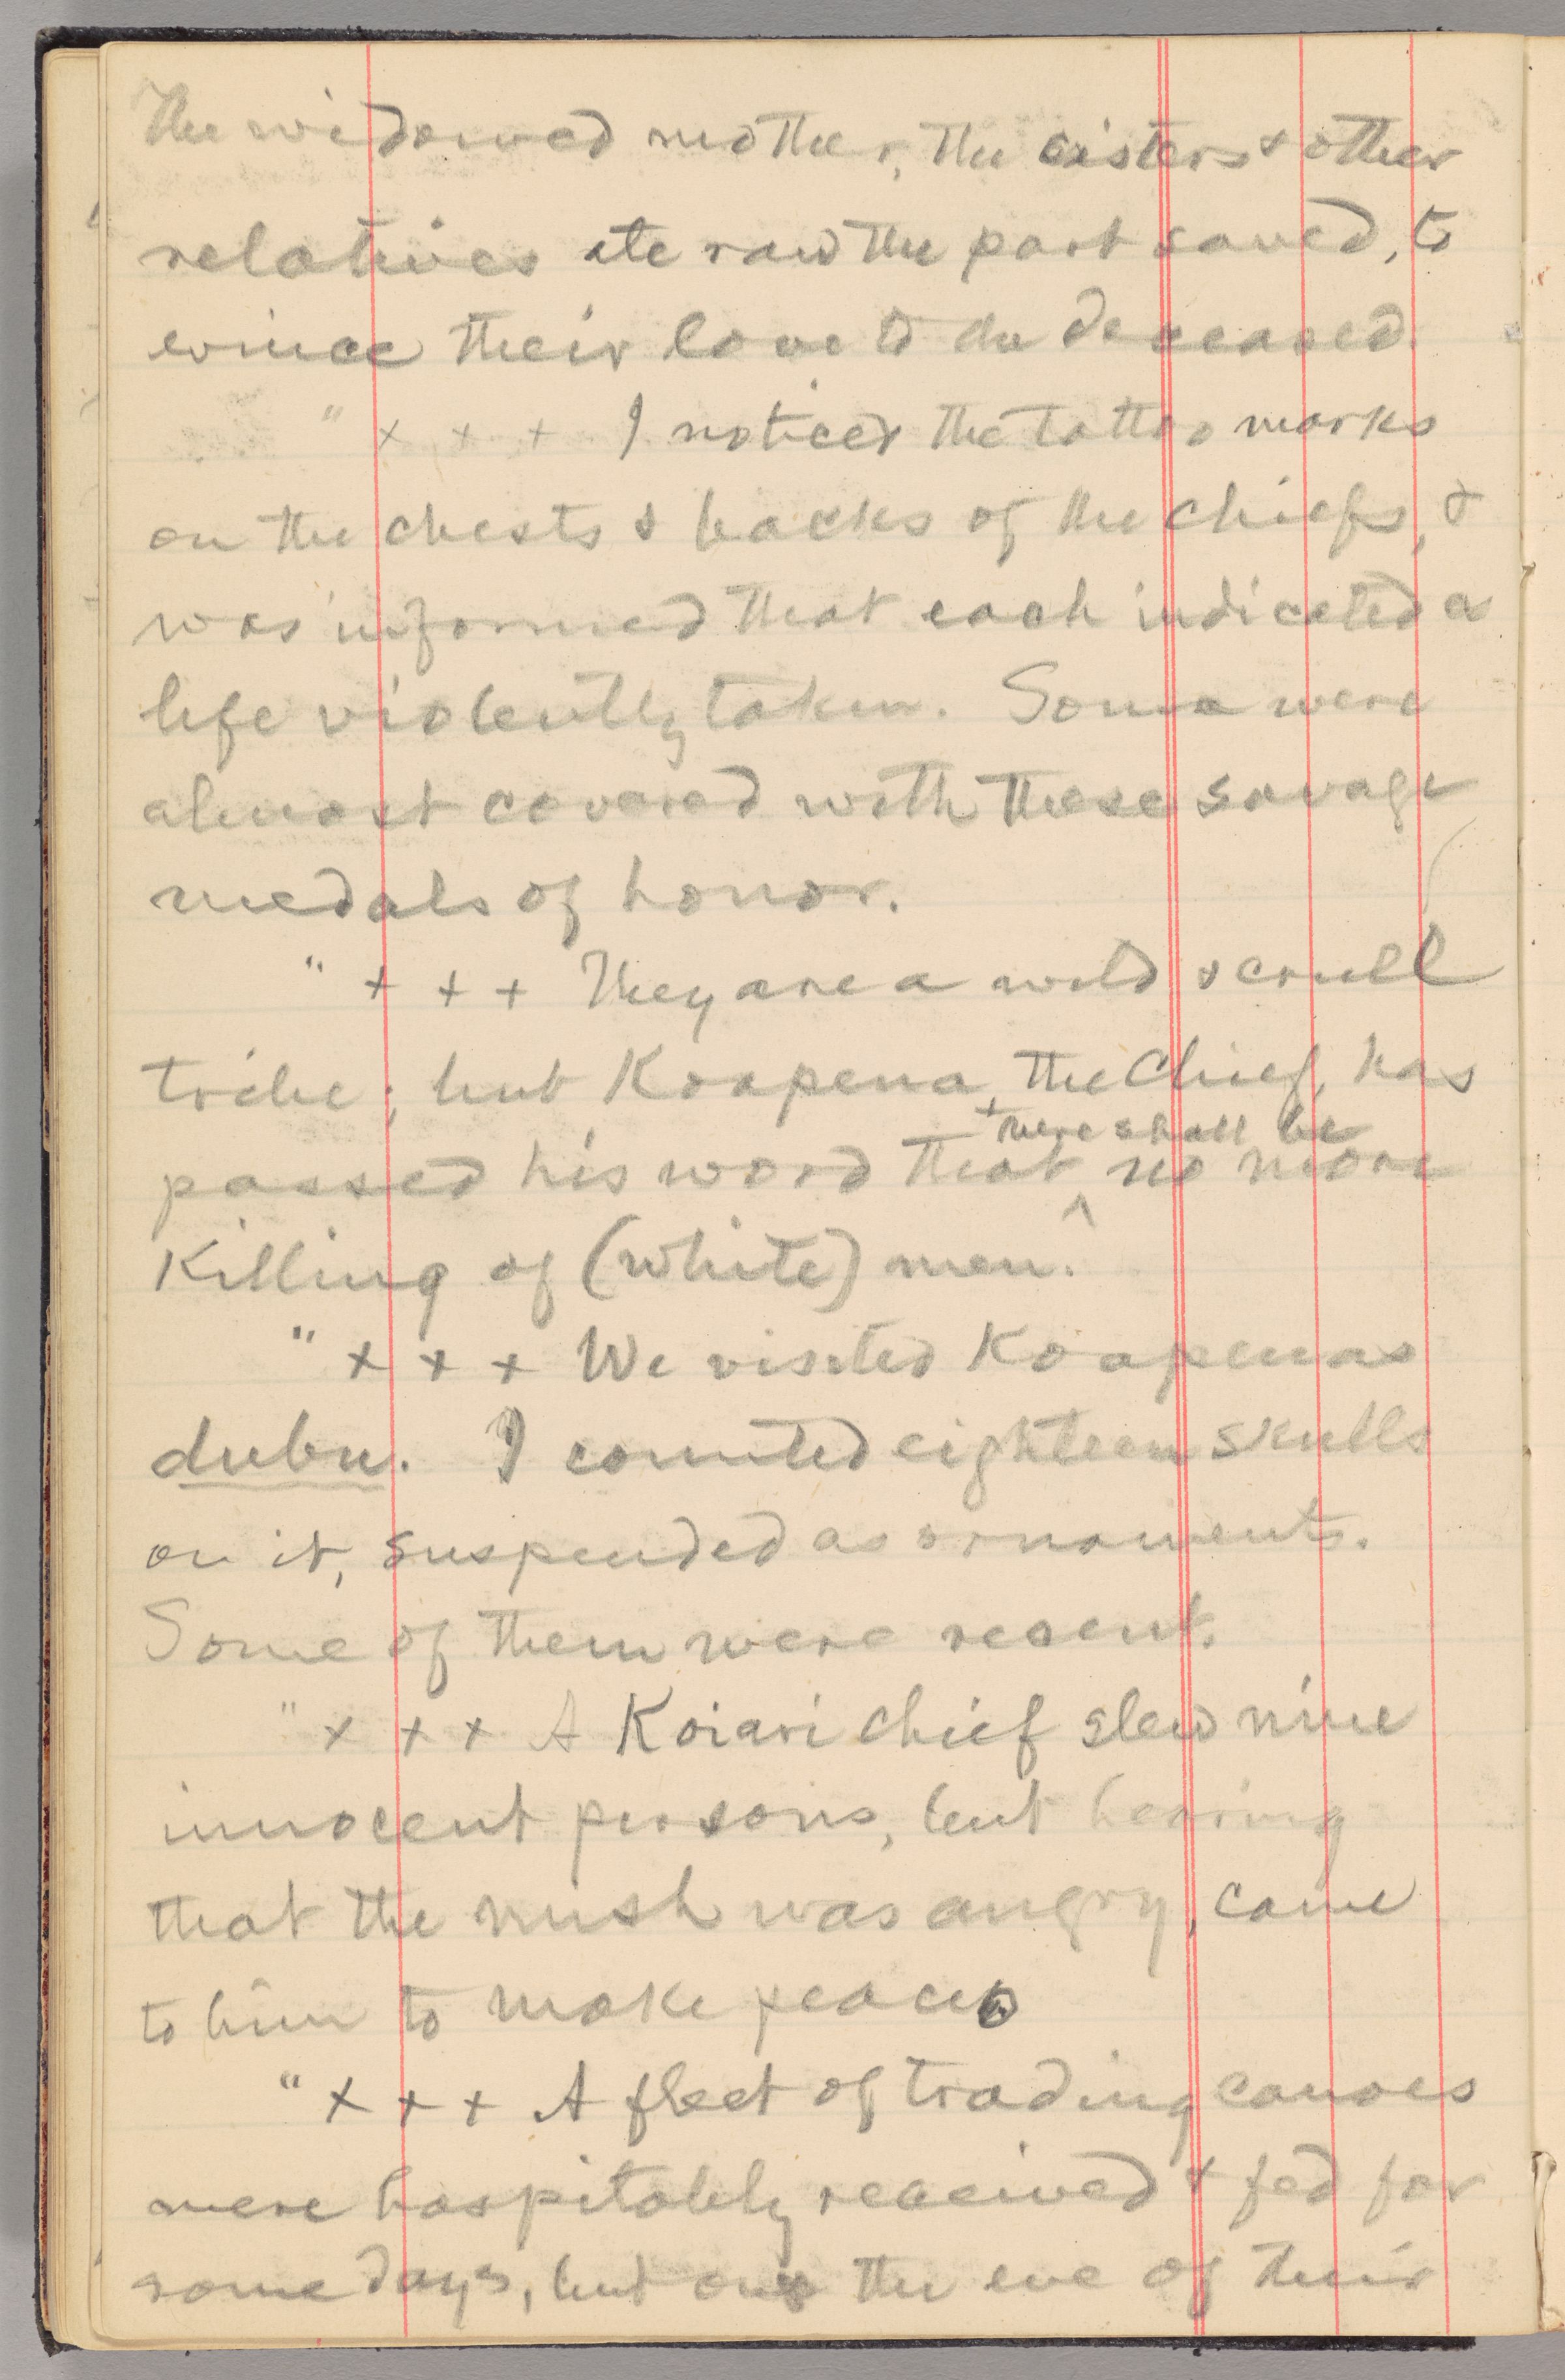 The widowed mother, the sisters & other
relatives ate raw the part saved, to
evince their love to the deceased.
" x x x I noticed the tattoo marks
on the chests & backs of the chiefs, &
was informed that each indicated a
life violently taken. Some were
almost covered with these savage
medals of honor.
" + + + They are a wild & cruell
tribe; but Koapena, the Chief, has
there shall be
passed his word that ^ no more
killing of (white) men.
" x x x We visited Koapenas
dubu. I counted eighteen skulls
on it, suspended as ornaments.
Some of them were resent.
" x + x A Koiari chief slew nine
innocent persons, but hearing
that the mish was angry, came
to him to make peace
" x + + A fleet of trading canoes
were hospitably received & fed for
some days, but on the eve of their